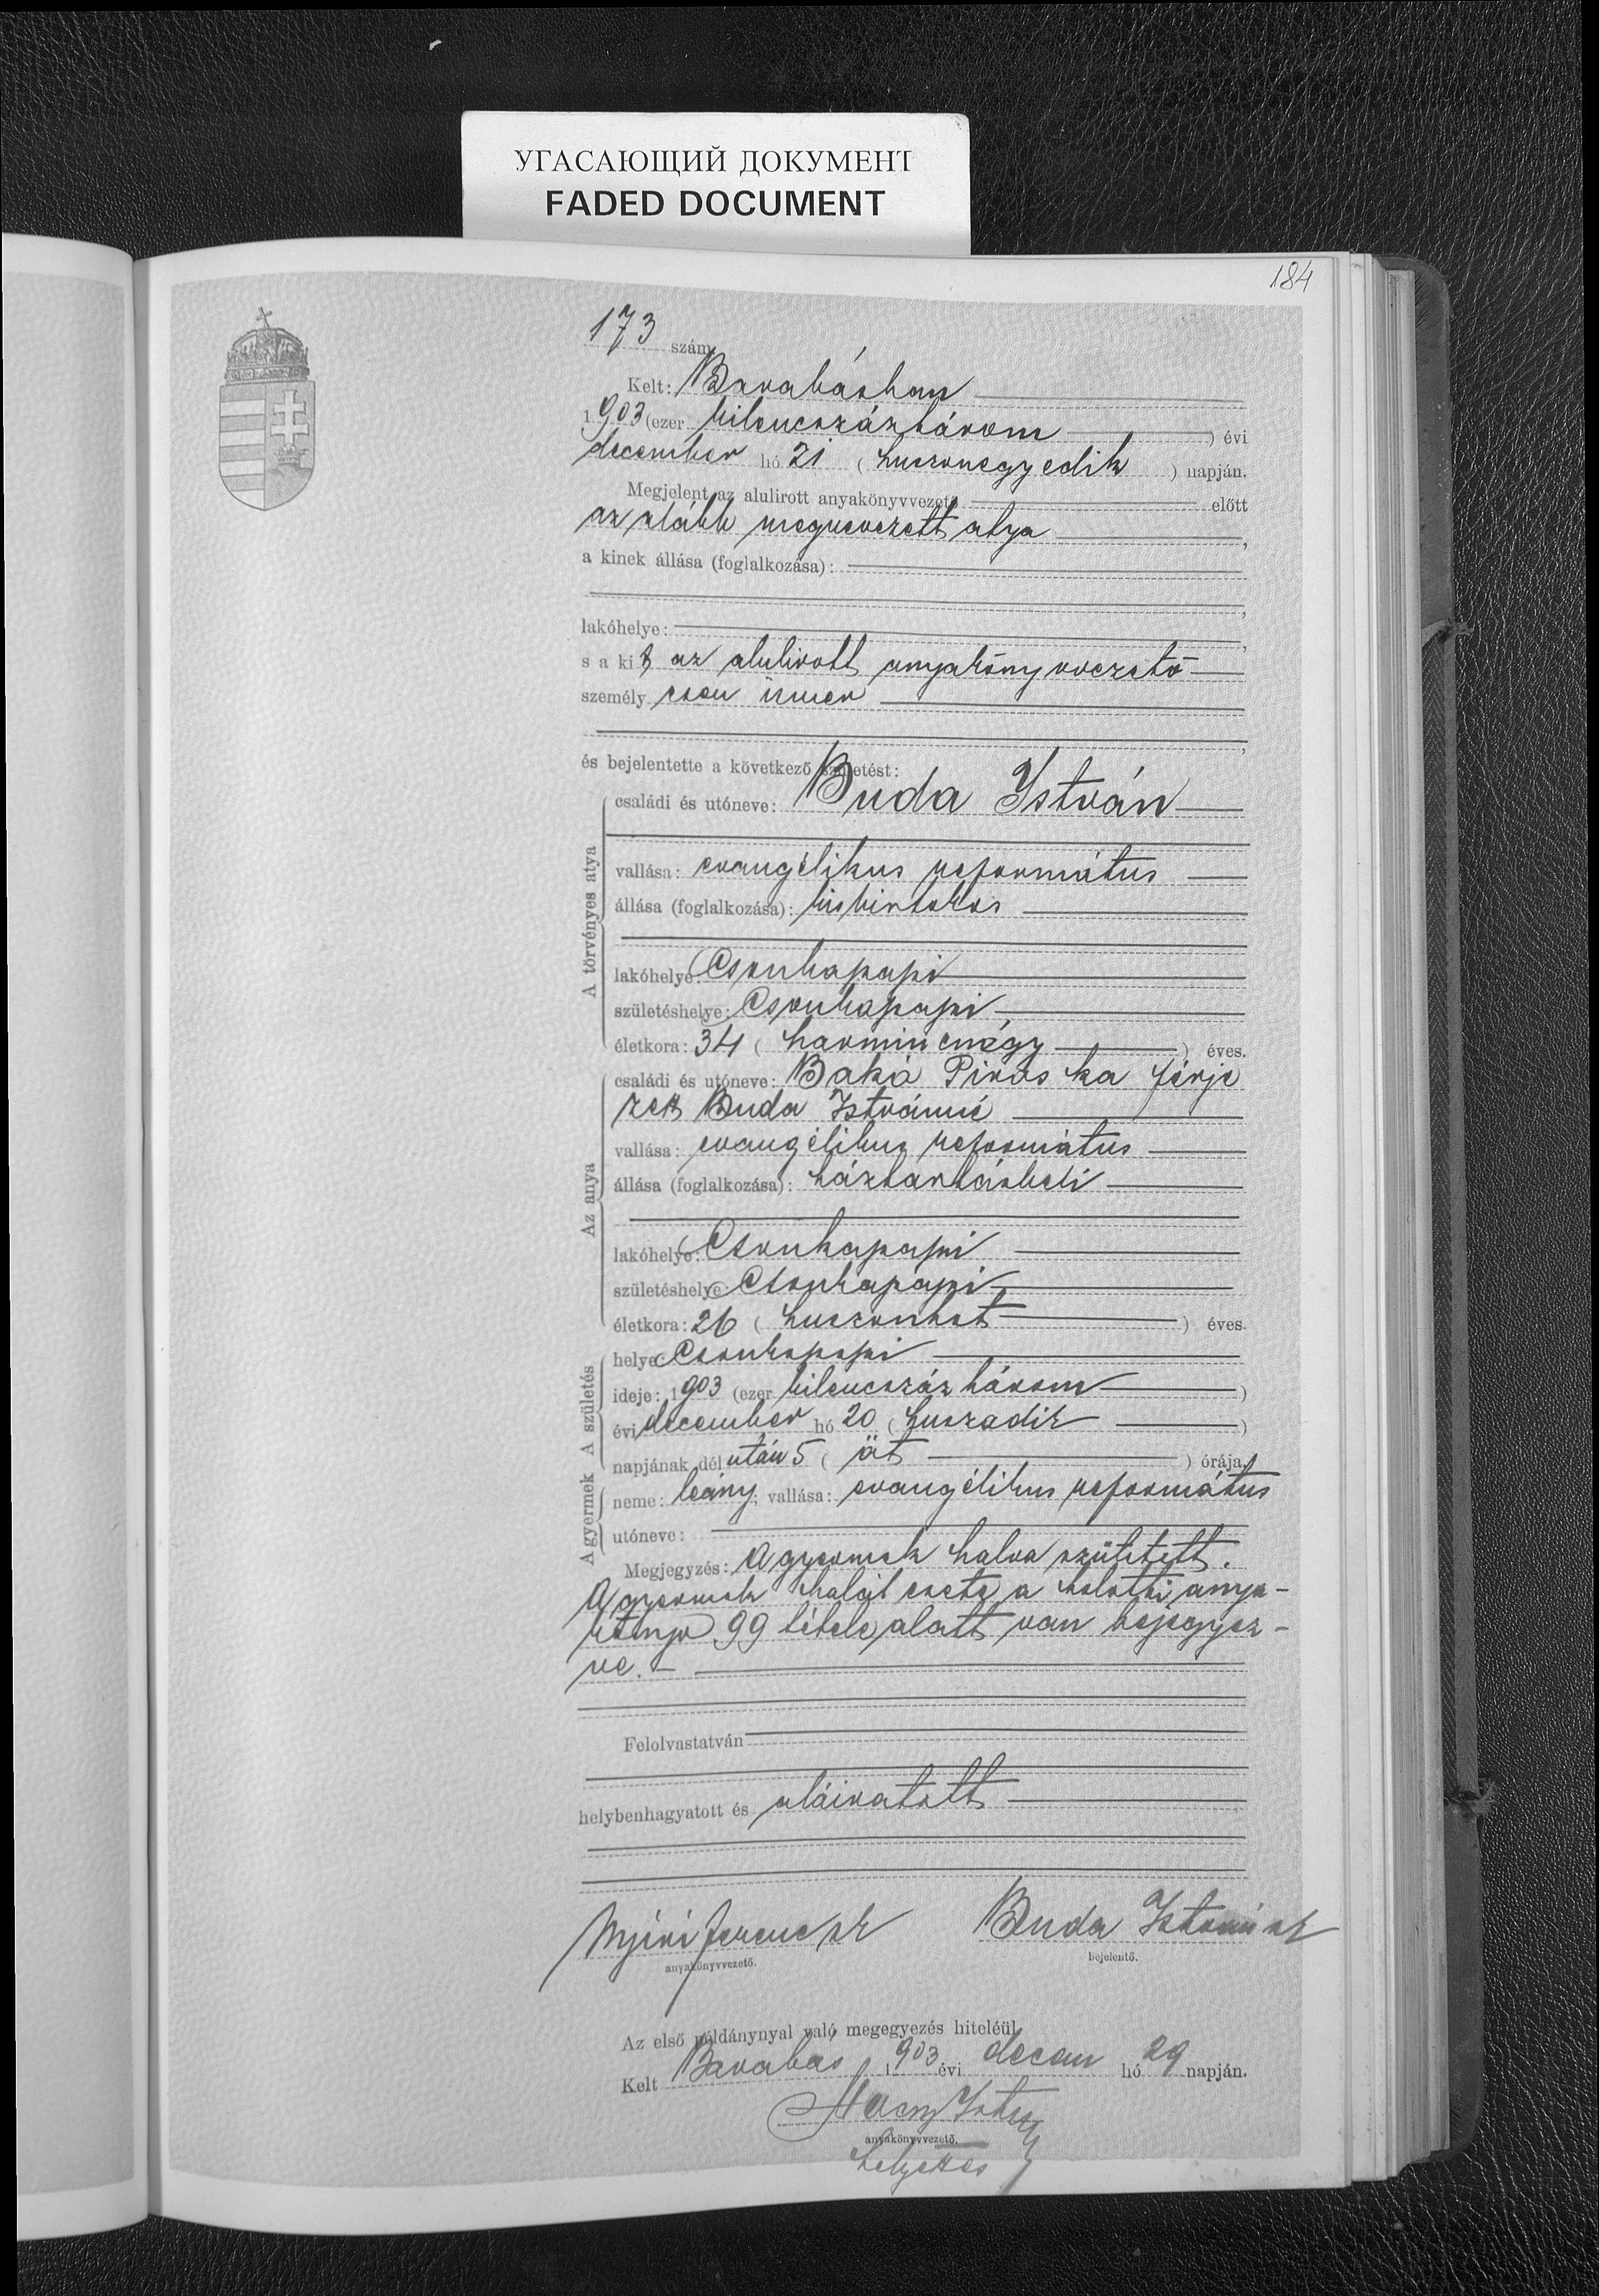 УГАСАЮЩИЙ ДОКУМЕНТ
FADED DOCUMENT
184
173 szám
Kelt: Barabásban
1903 (ezer kilenczázhárom ) évi
december hó 21 ( huszonegyedik ) napján.
Megjelent az alulirott anyakönyvvezető előtt
az alább megnevezett atya ,
a kinek állása (foglalkozása):
,
lakóhelye: ,
s a kit az alulirott anyakönyvvezető
személyesen ismer
,
és bejelentette a következő születést:
A törvényes atya
családi és utóneve: Buda István
vallása: evangélikus református
állása (foglalkozása): kisbirtokos
lakóhelye: Csonkapapi
születéshelye: Csonkapapi
életkora: 34 ( harmincnégy ) éves.
Az anya
családi és utóneve: Baka Piroska férje
zett Buda Istvánné
vallása: evangélikus református
állása (foglalkozása): háztartásbeli
lakóhelye: Csonkapapi
születéshelye: Csonkapapi
életkora: 26 ( huszonhat ) éves.
A születés
helye: Csonkapapi
ideje: 1903 (ezer kilenczáz három )
évi december hó 20 ( huszadik )
napjának dél után 5 ( öt ) órája.
A gyermek
neme: leány; vallása: evangélikus református
utóneve:
Megjegyzés: A gyermek halva született.
A gyermek halál esete a halotti anya-
könyv 99 tétele alatt van bejegyez-
ve. —
Felolvastatván
helybenhagyatott és aláiratott
Nyíri Ferencz sk Buda István sk
anyakönyvvezető. bejelentő.
Az első példánynyal való megegyezés hiteléül
Kelt Barabás 1903 évi decem hó 29 napján.
anyakönyvvezető.
helyettes